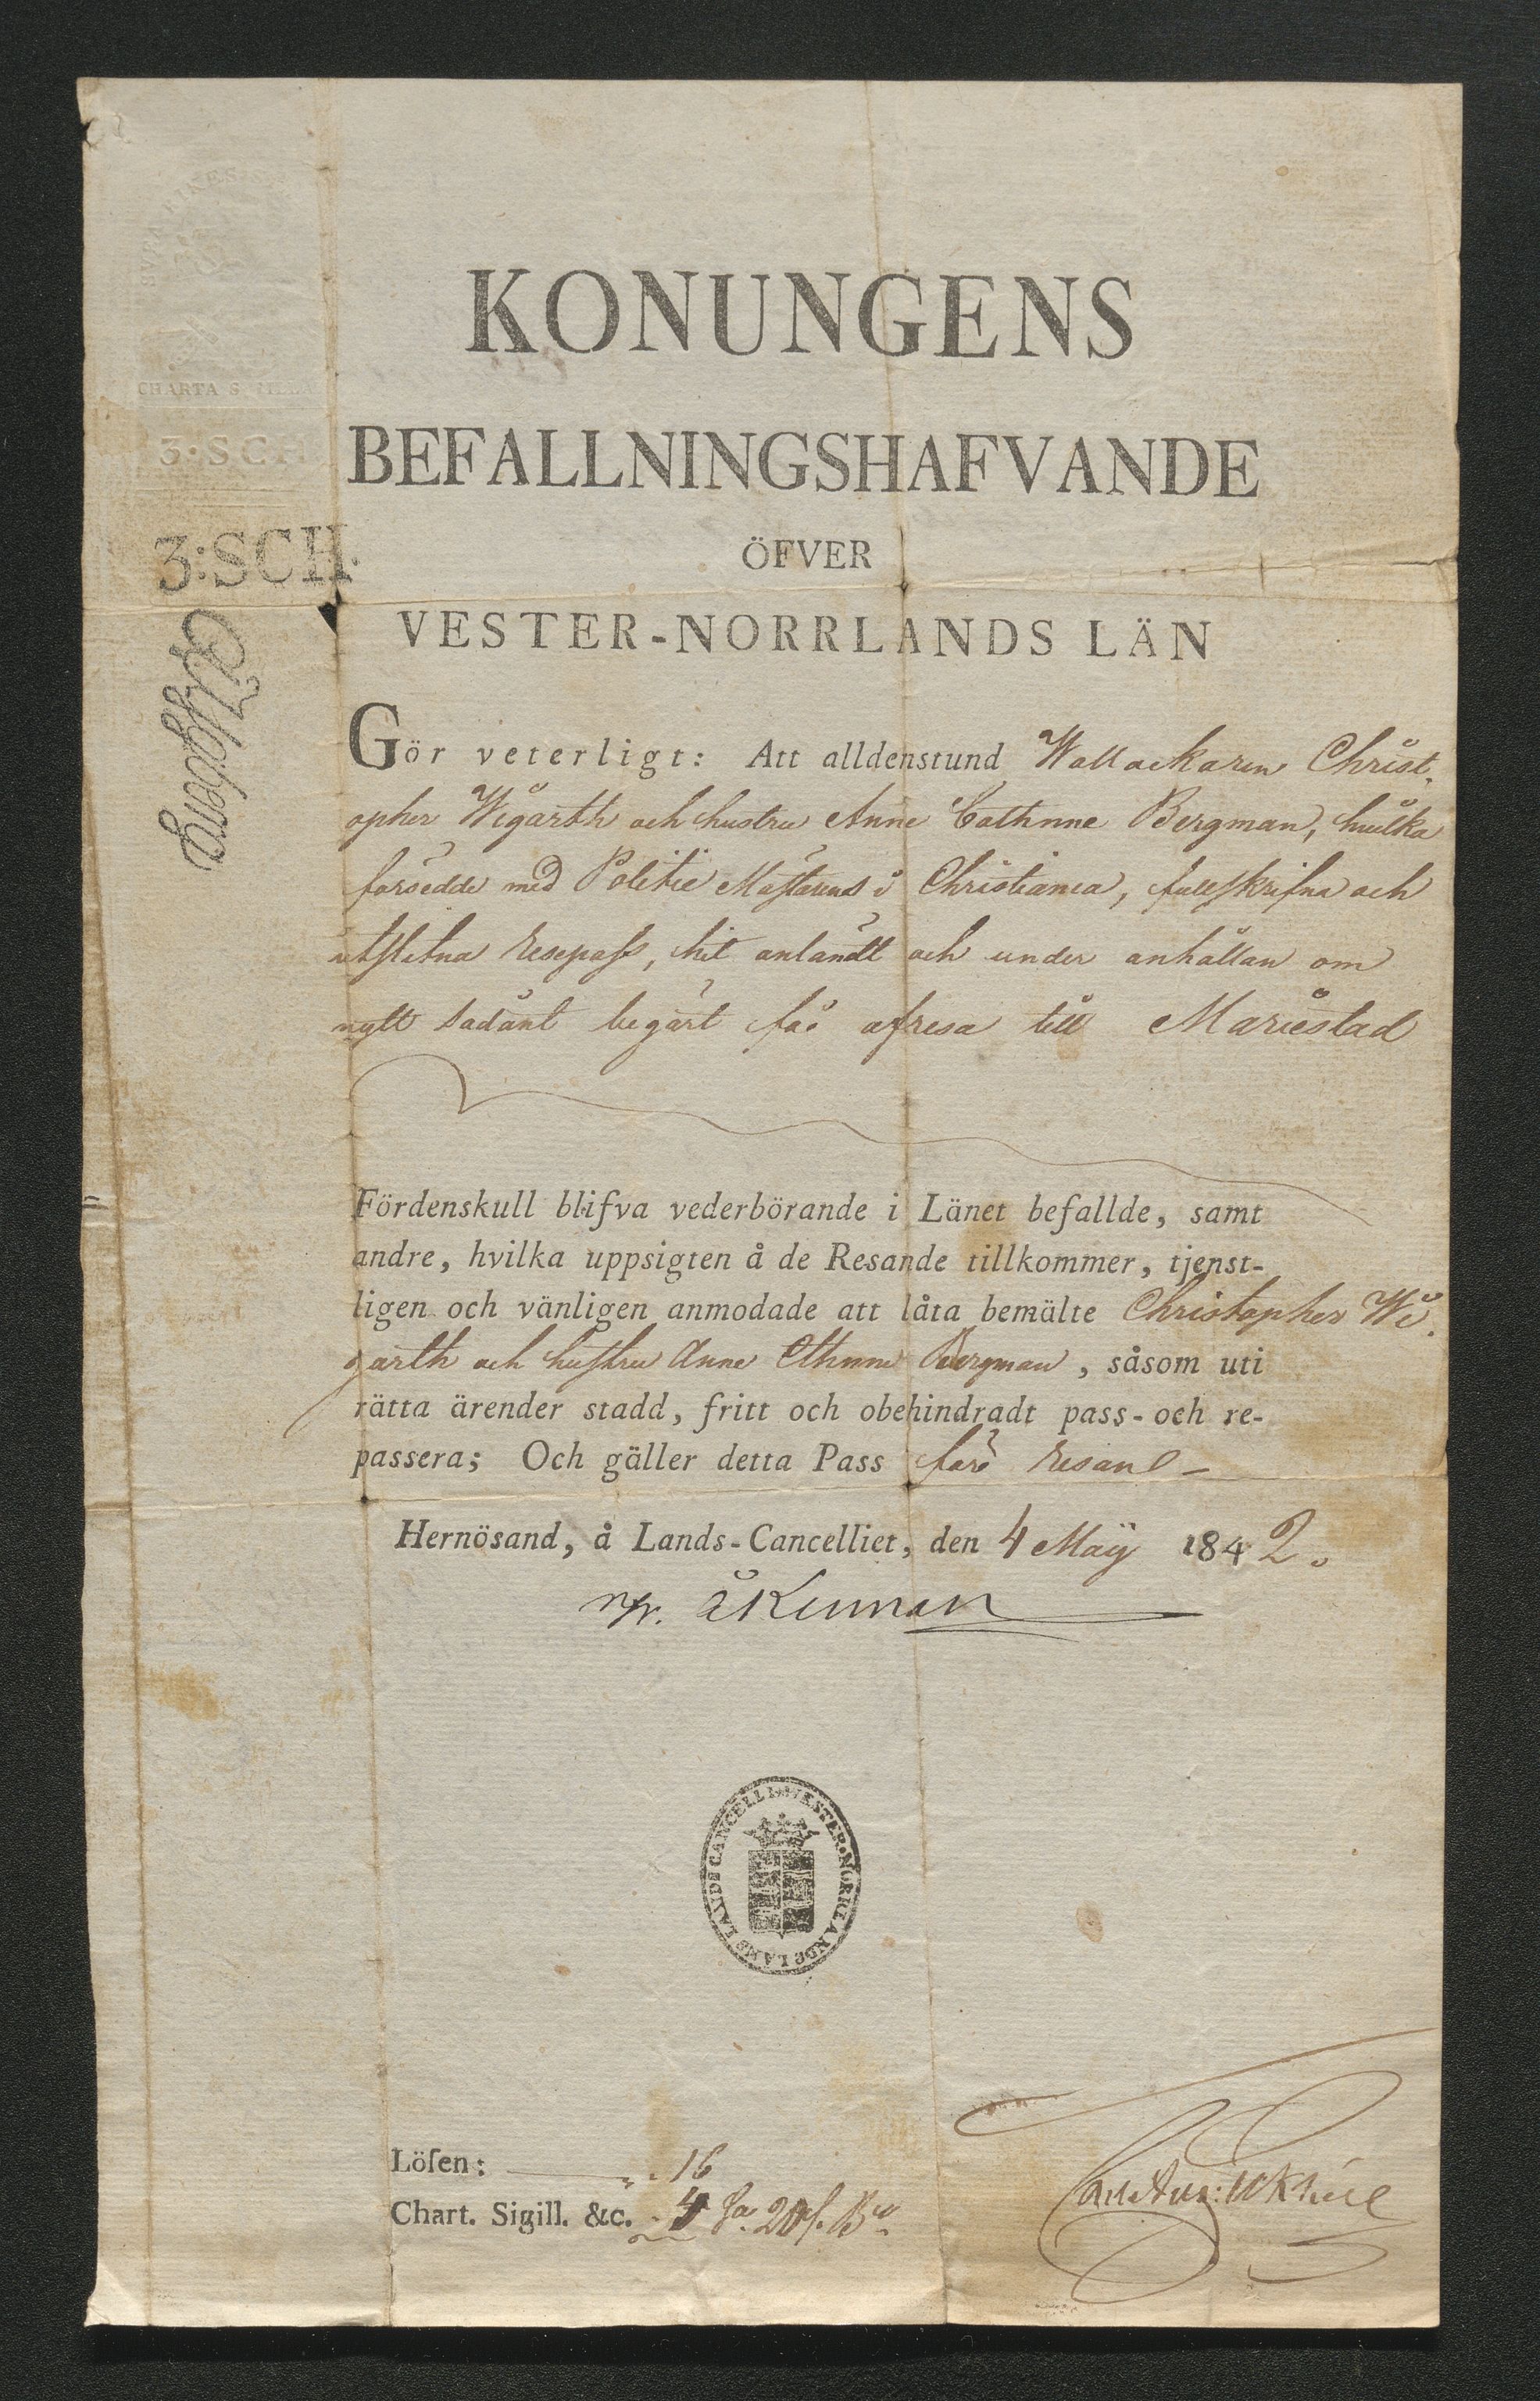 CHARTA S
3:SCH
3:SCH.
KONUNGENS
BEFALLNINGSHAFVANDE
ÖFVER
VESTER-NORRLANDS LÄN
Gör veterligt: Att alldenstund Wallackaren Christ-
opher Wigarth och hustru Anne Cathrine Bergman, hvilka
försedde med Politie Mästarens i Christiania, fullskrifna och
utslitna resepass, hit anländt och under anhållan om
nytt sådant begärt få afresa till Mariestad
Fördenskull blifva vederbörande i Länet befallde, samt
andre, hvilka uppsigten å de Resande tillkommer, tjenst-
ligen och vänligen anmodade att låta bemälte Christopher Wi-
garth och hustru Anne Bergman, såsom uti
rätta ärender stadd, fritt och obehindradt pass- och re-
passera; Och gäller detta Pass före resan
Hernösand, å Lands-Cancelliet, den 4 Maij 1842.
LANDS CANCELLI WESTER-NORRLANDS LÄNS
Lösen: 16
Chart. Sigill. &c. 4 20